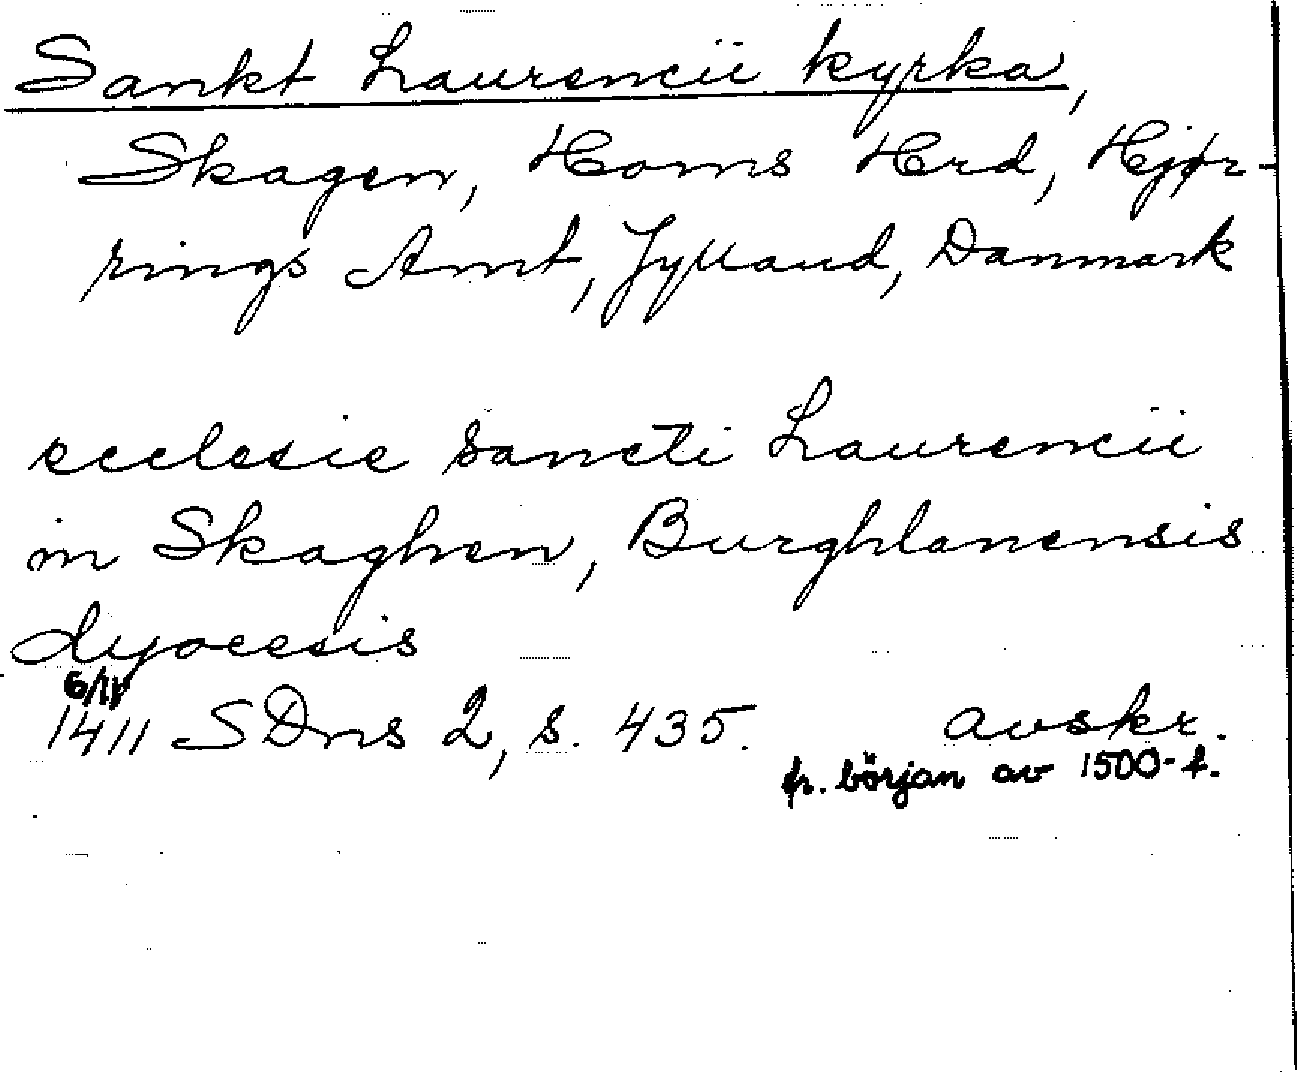 Sankt Laurencii kyrka,
Skagen, Horns Hrd, Hjør-
rings Amt, Jylland, Danmark
ecclesie sancti Laurencii
in Skaghen, Burghlanensis
dyocesis
6/11
1411 SDns 2, s. 435. avskr.
fr. början av 1500-t.